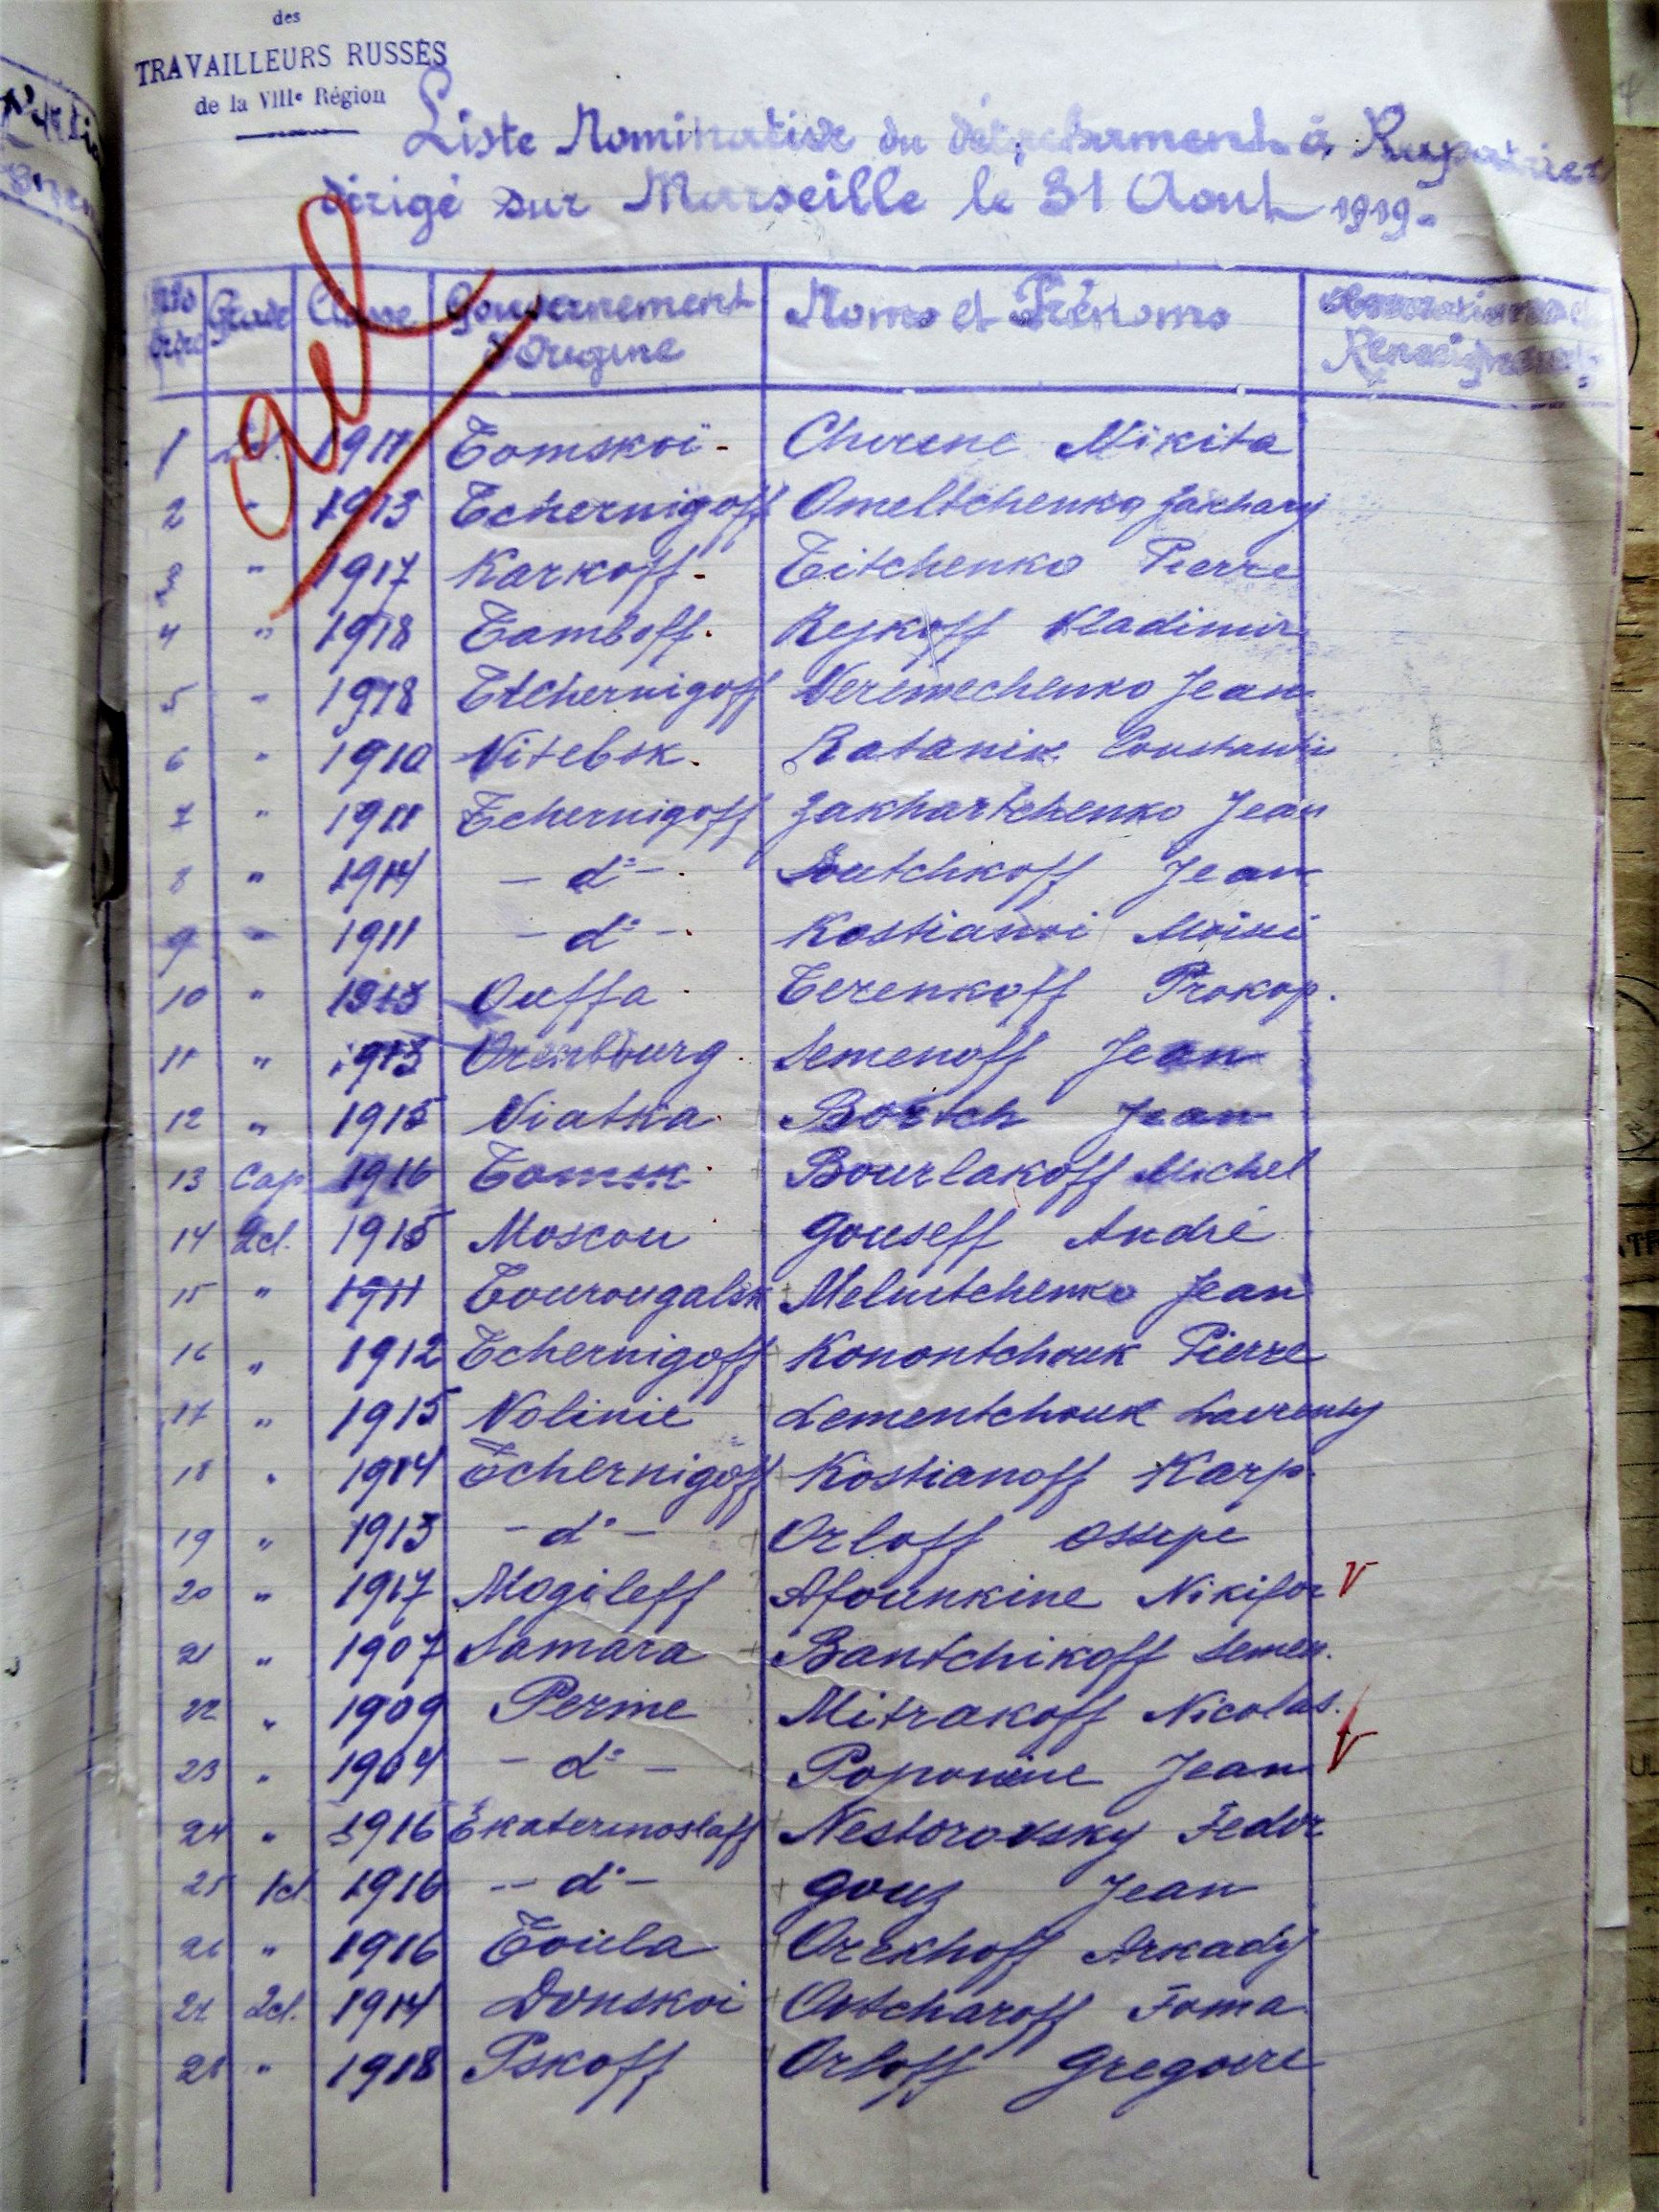 des
TRAVAILLEURS RUSSES
de la VIIIe Région
Liste Nominative du détachement à Rapatrier
dirigé sur Marseille le 31 Aout 1919-
Nos Grade Classe Gouvernement d'Origine Noms et Prénoms
1 2cl. 1911 Tomskoï - Cherene Nikita
2 " 1913 Tchernigoff Omeltchenko Zakhary
3 " 1917 Karkoff - Titchenko Pierre
4 " 1918 Tamboff. Rejkoff Vladimir
5 " 1918 Tchernigoff Veremechenko Jean
6 " 1910 Vitebsk. Ratanik Constantin
7 " 1911 Tchernigoff Zakhartchenko Jean
8 " 1914 - d° - Soutchkoff Jean
9 " 1911 - d° - Kostianoi
10 " 1913 Ouffa Terenkoff Prokop.
11 " 1913 Orenbourg Semenoff Jean
12 " 1915 Viatka Bortch Jean
13 Cap 1916 Tomsk Bourlakoff Michel
14 2cl. 1915 Moscou Gouseff André
15 " 1911 Tourougalsk Melnitchenko Jean
16 " 1912 Tchernigoff Konontchouk Pierre
17 " 1915 Volinie Lementchouk Lavrenty
18 " 1914 Tchernigoff Kostianoff Karp.
19 " 1913 - d° - Orloff Ossipe
20 " 1917 Mogileff Afounkine Nikifor V
21 " 1907 Samara Bantchikoff Semen.
22 " 1909 Perme Mitrakoff Nicolas.
23 " 1904 - d° - Poponine Jean V
24 " 1916 Ekaterinoslaff Nestorovsky Fedor
25 1cl 1916 - d° - Gouz Jean
26 " 1916 Toula Orekhoff Arkady
27 2cl. 1914 Donskoi Ovtcharoff Foma
28 " 1918 Pskoff Orloff Gregoire